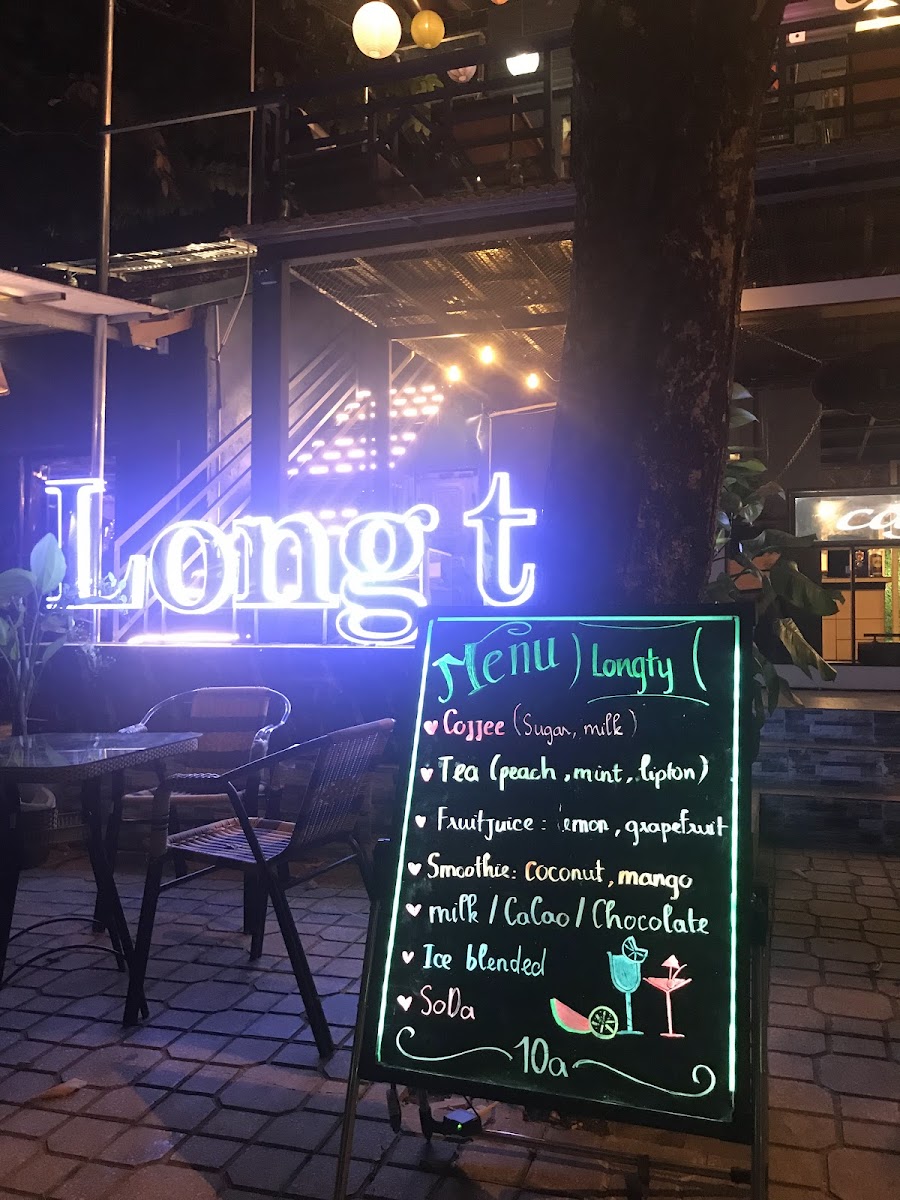 Long t
Menu ) Longty (
Coffee (Sugar, milk)
Tea (peach, mint, lipton)
Fruitjuice : lemon, grapefruit
Smoothie: coconut, mango
milk / CaCao / Chocolate
Ice blended
SoDa
10a